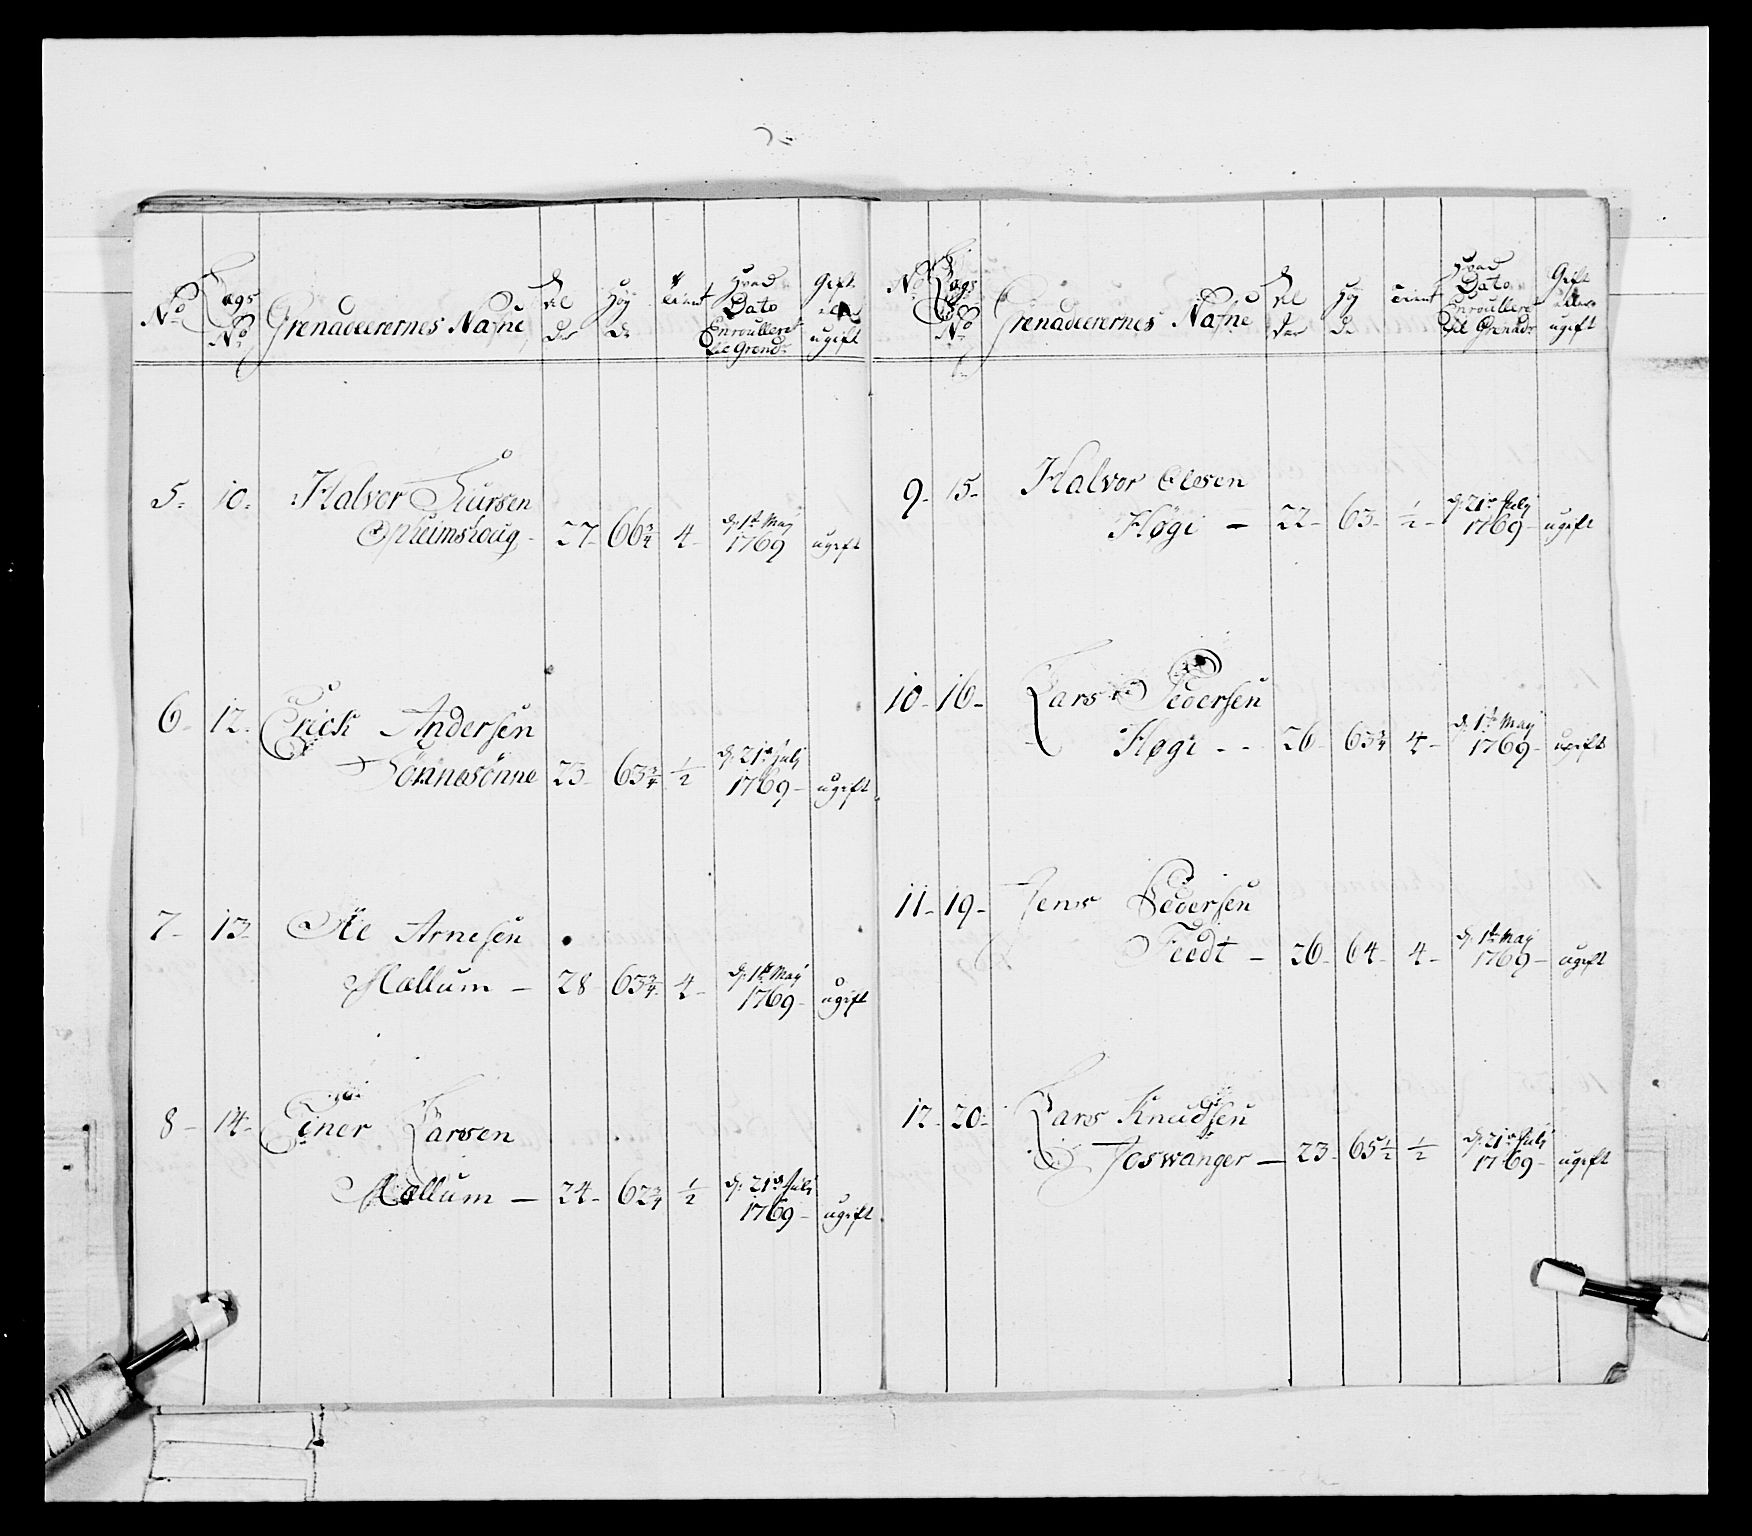 No Lægs No Grenadeerernes Nafne Al der Høy de tient Hvad Dato Enroulleret til Grend: Gift eller ugift
5. 10. Halver Siursen
Opheimshoug - 27- 66 3/4 4- d: 1te May 1769 ugift
6- 12. Erick Andersen
Sönnesönne 23- 63 3/4 1/2 d: 21de julj 1769- ugift
7- 13- Ole Arnesen
Mællum - 28- 63 3/4- 4- d: 1te May 1769- ugift
8- 14- Einer Larsen
Mællum - 24- 62 3/4 1/2 d: 21de Julj 1769- ugift
No Lægs No Grenadeerernes Nafne Al der Høy de tient Hvad Dato Enroulleret til Grenadr Gift eller ugift
9- 15- Halvor Olesen
Høgi - 22- 63- 1/2- d: 21de July 1769- ugift
10- 16- Lars Pedersen
Høgi - - 26- 63 3/4 4- d: 1te May 1769- ugift
11- 19- Jens Pedersen
Feedt - 26- 64- 4- d: 1te May 1769- ugift
12- 20- Lars Knudsen
Joswanger - 23- 65 1/2 1/2 d: 21de Julj 1769- ugift